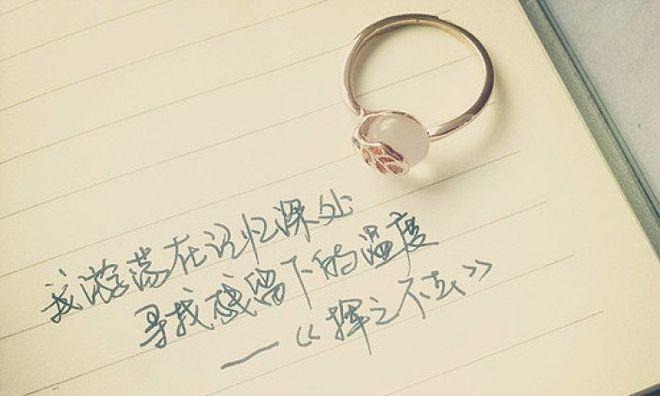 我游荡在记忆深处
寻找残留下的温度
—《挥之不去》